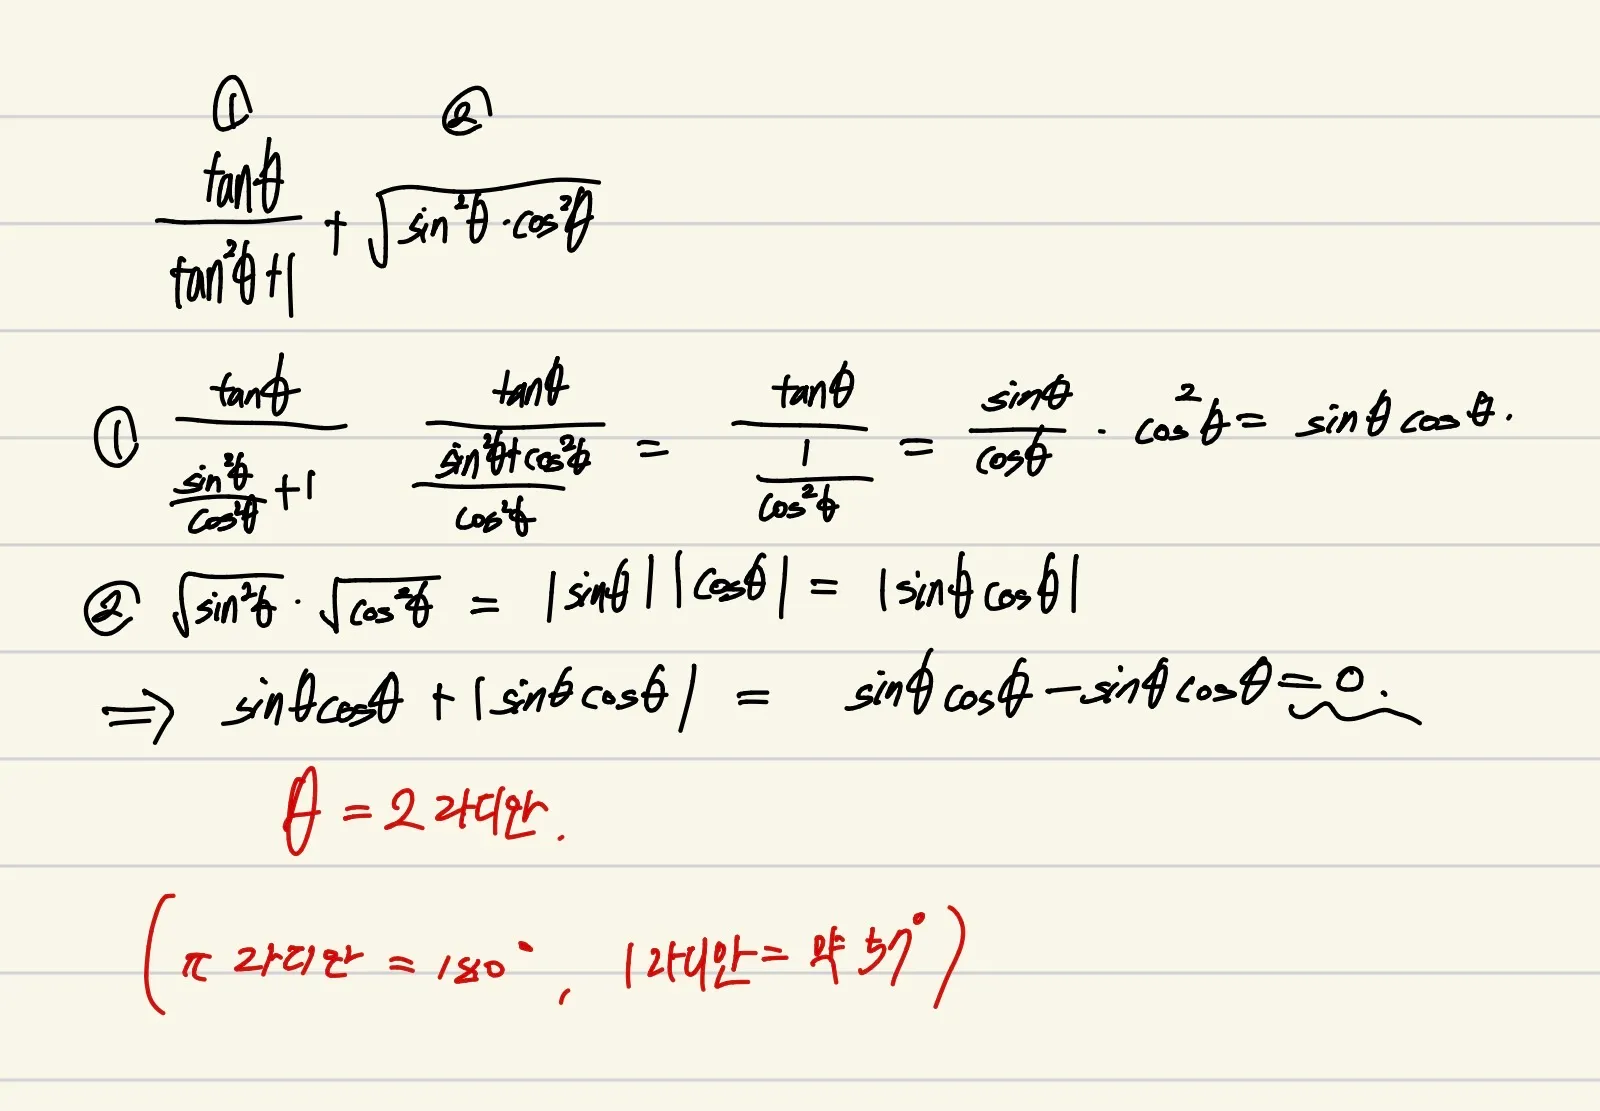 ① ②
tanθ/(tan²θ+1) + √(sin²θ·cos²θ)
① tanθ/(sin²θ/cos²θ +1) tanθ/((sin²θ+cos²θ)/cos²θ) = tanθ/(1/cos²θ) = sinθ/cosθ · cos²θ = sinθ cosθ.
② √sin²θ · √cos²θ = |sinθ| |cosθ| = |sinθ cosθ|
⇒ sinθcosθ + |sinθ cosθ| = sinθ cosθ - sinθ cosθ = 0.
θ = 2 라디안.
(π 라디안 = 180°, 1 라디안 = 약 57°)